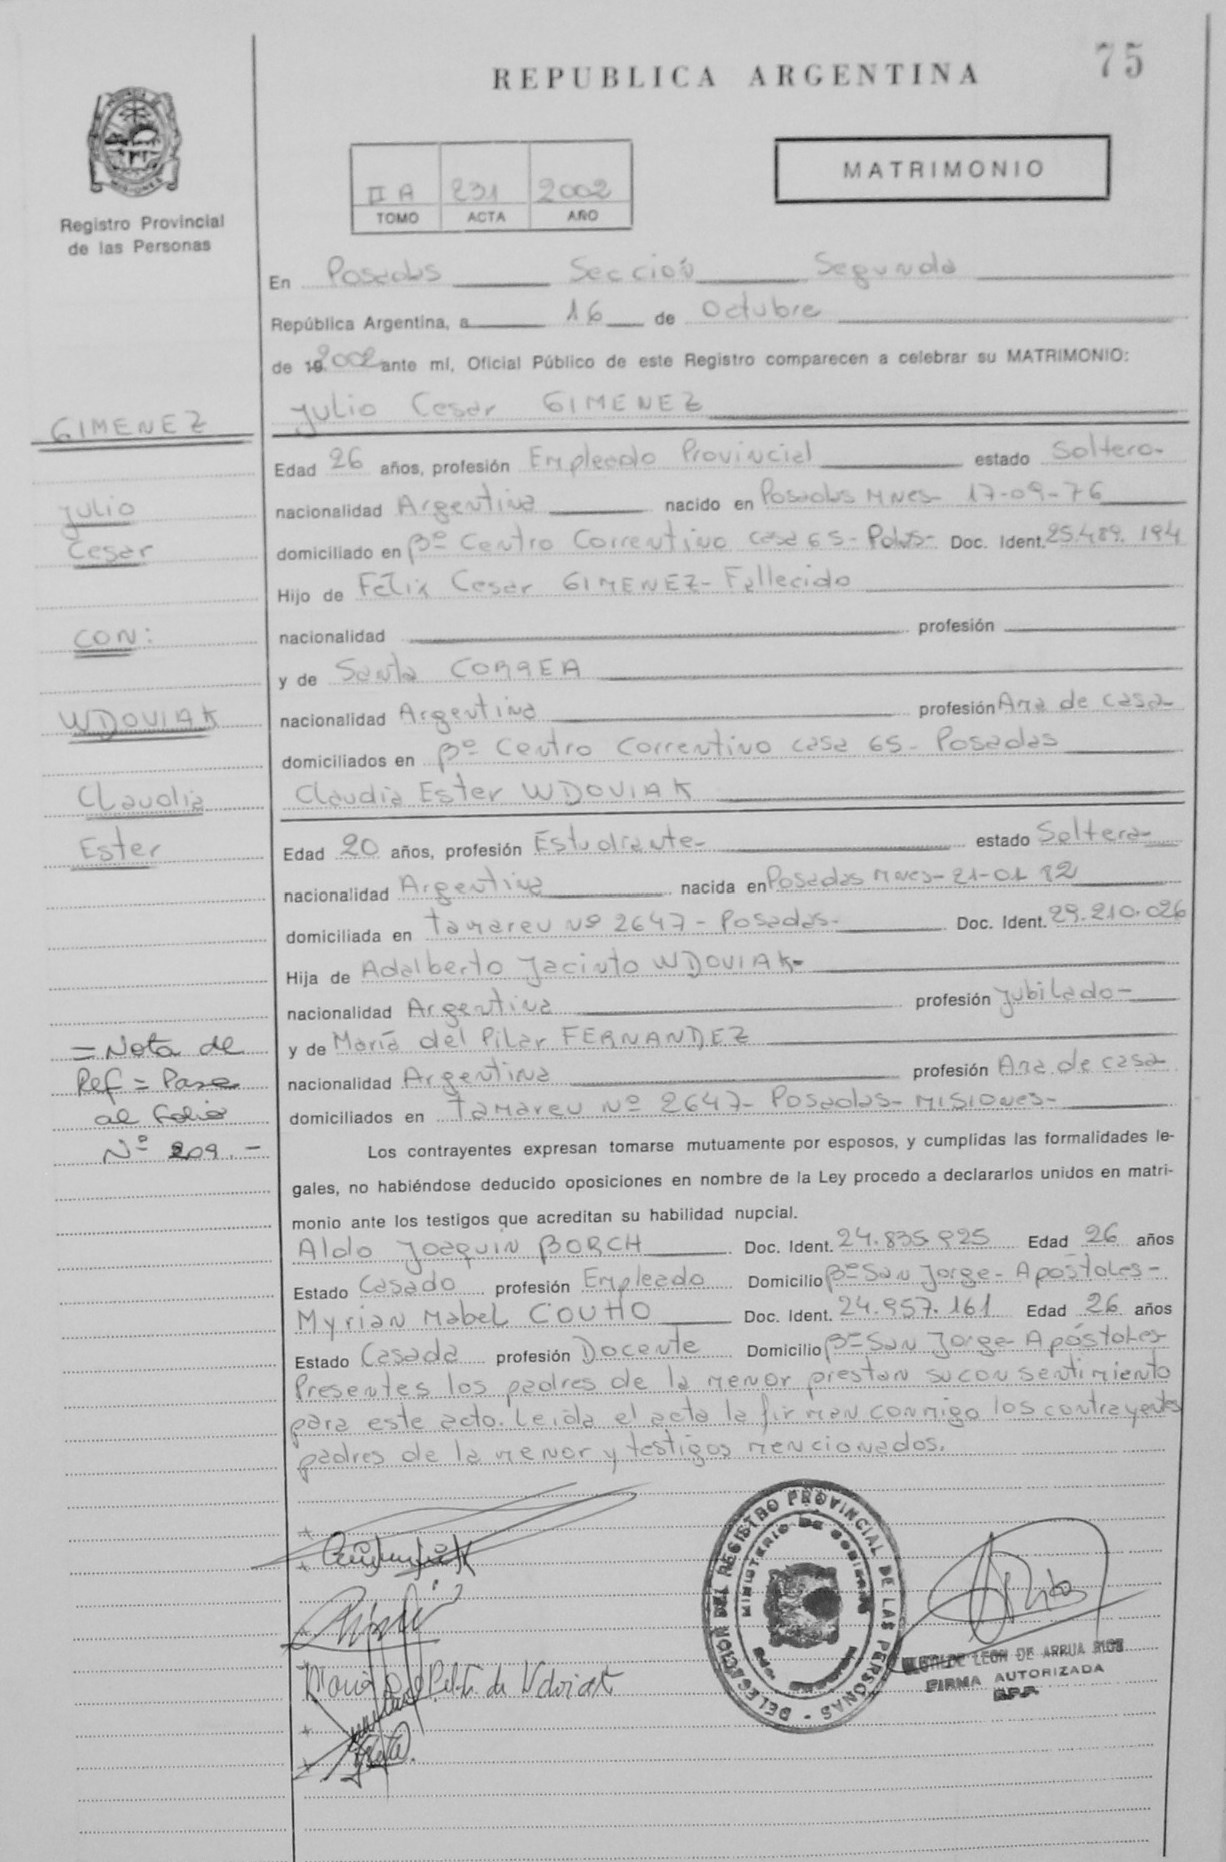 REPUBLICA ARGENTINA
75
Registro Provincial
de las Personas
II A 231 2002
TOMO ACTA AÑO
MATRIMONIO
En Posadas Sección Segunda
República Argentina, a 16 de Octubre
de 2002 ante mí, Oficial Público de este Registro comparecen a celebrar su MATRIMONIO:
Julio Cesar GIMENEZ
Edad 26 años, profesión Empleado Provincial estado Soltero-
nacionalidad Argentina nacido en Posadas Mnes- 17-09-76
domiciliado en Bº Centro Correntino casa 65- Pdas- Doc. Ident. 25.489.194
Hijo de Félix Cesar GIMENEZ- Fallecido
nacionalidad profesión
y de Santa CORREA
nacionalidad Argentina profesión Ama de casa
domiciliados en Bº Centro Correntino casa 65- Posadas
Claudia Ester WDOVIAK
Edad 20 años, profesión Estudiante- estado Soltera-
nacionalidad Argentina nacida en Posadas Mnes- 21-01 82
domiciliada en Tamareu Nº 2647- Posadas- Doc. Ident. 29.210.026
Hija de Adalberto Jacinto WDOVIAK-
nacionalidad Argentina profesión Jubilado-
y de María del Pilar FERNANDEZ
nacionalidad Argentina profesión Ama de casa
domiciliados en Tamareu Nº 2647- Posadas- MISIONES-
Los contrayentes expresan tomarse mutuamente por esposos, y cumplidas las formalidades le-
gales, no habiéndose deducido oposiciones en nombre de la Ley procedo a declararlos unidos en matri-
monio ante los testigos que acreditan su habilidad nupcial.
Aldo Joaquin BORCH Doc. Ident. 24.835.925 Edad 26 años
Estado Casado profesión Empleado Domicilio Bº San Jorge- Apóstoles-
Myrian Mabel COUTO Doc. Ident. 24.957.161 Edad 26 años
Estado Casada profesión Docente Domicilio Bº San Jorge Apóstoles
Presentes los padres de la menor prestan su consentimiento
para este acto. Leída el acta la firman conmigo los contrayentes
padres de la menor y testigos mencionados.
GIMENEZ
Julio
Cesar
CON:
WDOVIAK
Claudia
Ester
=Nota de
Ref= Pase
al folio
Nº 209.-
María del Pilar de Wdoviak
DELEGACION DEL REGISTRO PROVINCIAL DE LAS PERSONAS
MINISTERIO DE GOBIERNO
LEON DE ARRUA RIOS
FIRMA AUTORIZADA
R.P.P.